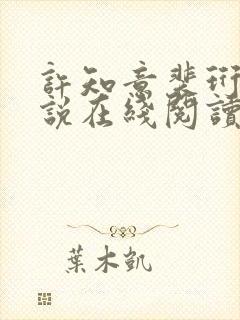 許知意裴珩
說在綫閱讀
葉木凱